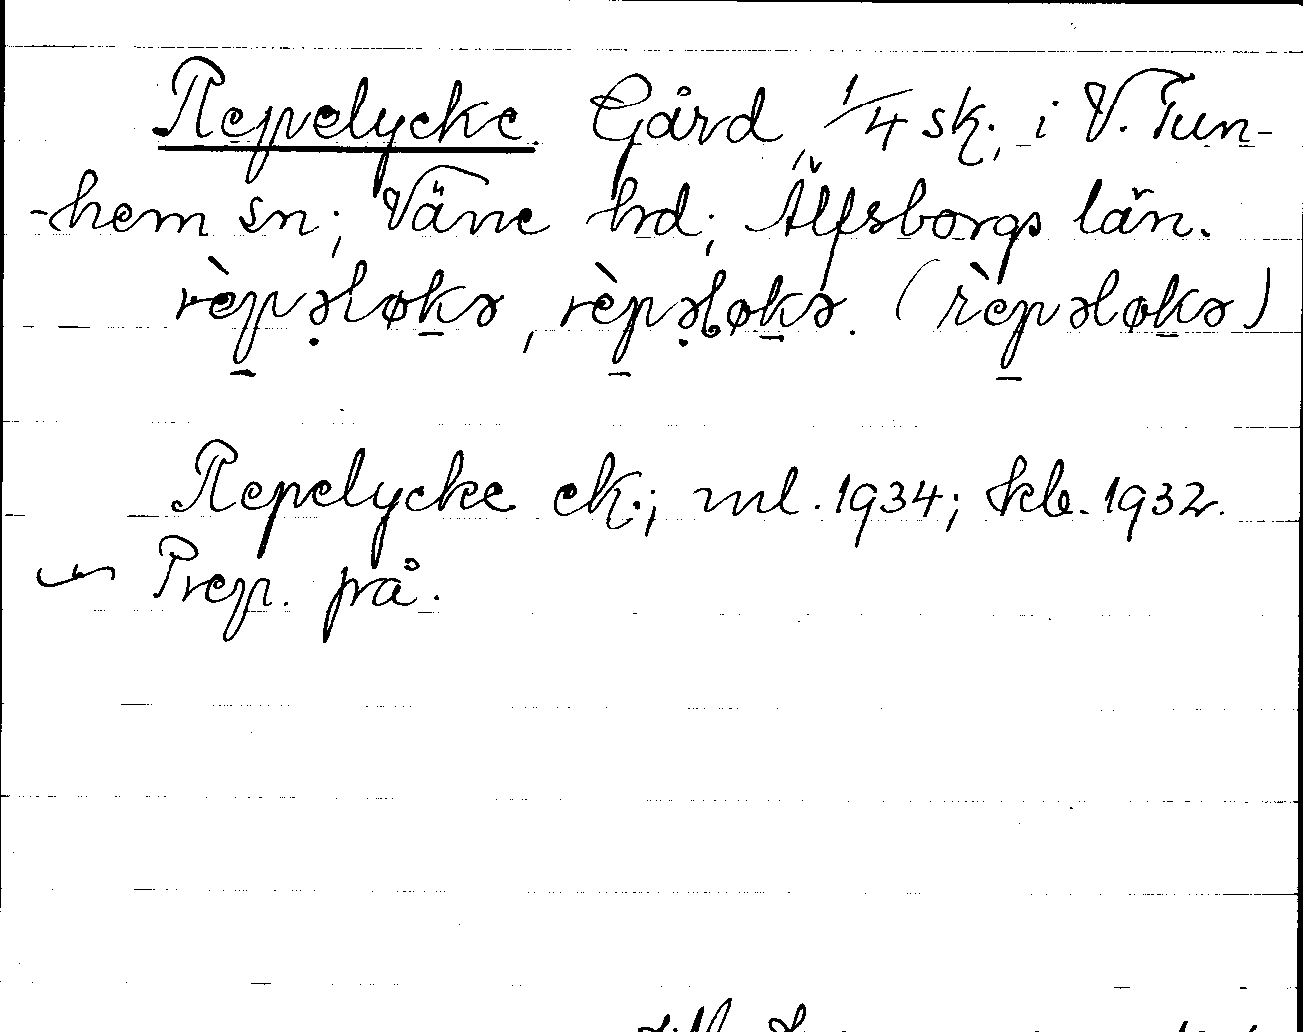 Repelycke. Gård, 1/4 sk., i V. Tun-
-hem sn; Väne hd; Älfsborgs län.
rèpələkə, rèpələkə. (rèpələkə)
Repelycke ek.; ml. 1934; kb. 1932.
Prep. på.